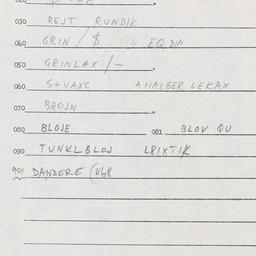 030 REJT RUNDIK
040 GRIN / $ EQ DIN
050 GRINLAX /-
060 S+VAXC HALBER LEKAX
070 BROJN
080 BLOJE 081 BLOV QU
090 TUNKLBLOJ L8IXTIK
901 DANDERE (468